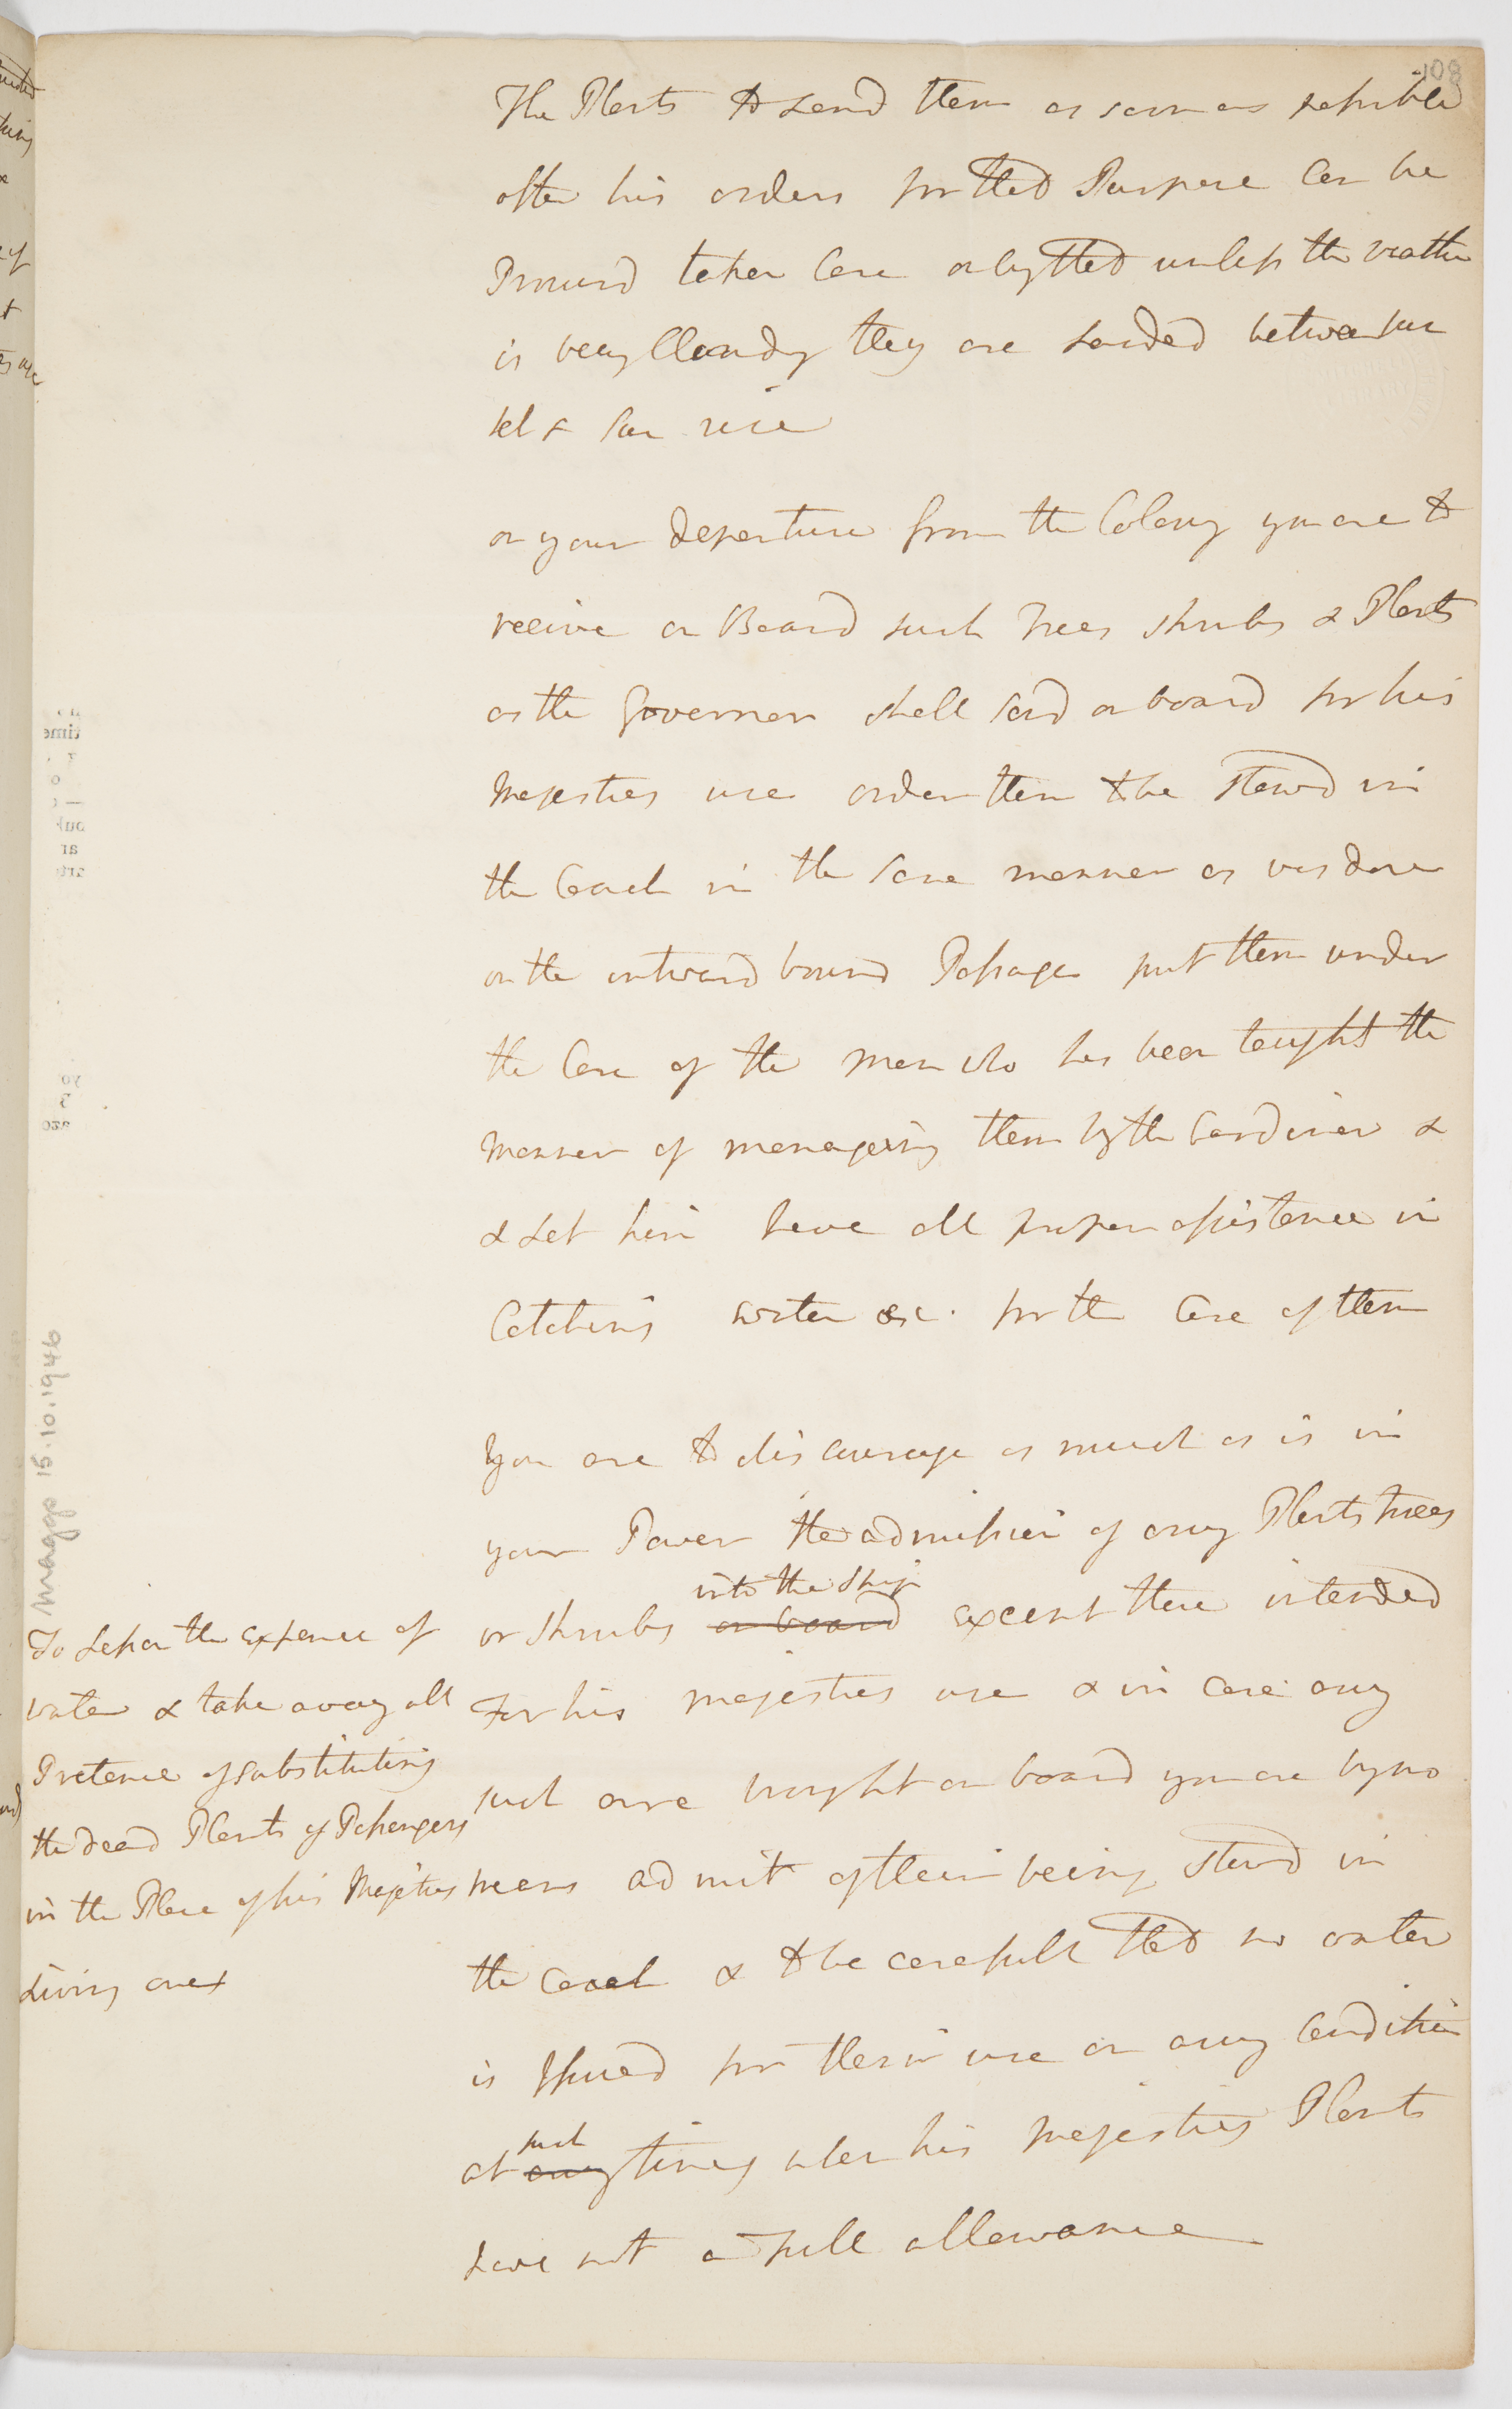 108
The Plants to Land them as soon as possible
after his orders for that Purpose Can be
Procurd taken Care only that unless the weather
is very Cloudy they are Landed between sun
set & Sun rise
on your departure from the Colony you are to
receive on Board such Trees shrubs & Plants
as the Governor shall send on board for his
Majesties use order them to be stowd in
the Coach in the same manner as was done
on the outward bound Passage put them under
the Care of the man who has been taught the
manner of manageing them by the Gardiner &
& Let him have all proper assistance in
Catching water &c. for the Care of them
You are to discourage as much as is in
your Power the admission of any Plants trees
or shrubs on board into the ship except those intended
For his majesties use & in case any
such are brought on board you are by no
means admit of their being stowd in
the Coach & to be carefull that no water
is Issued for their use on any Condition
at any such times when his Majesties Plants
have not a full allowance
To Lessen the expence of
water & take away all
Pretence of substituting
the dead Plants of Passengers
in the Place of his Majesties
Living ones
Maggs 15.10.1946